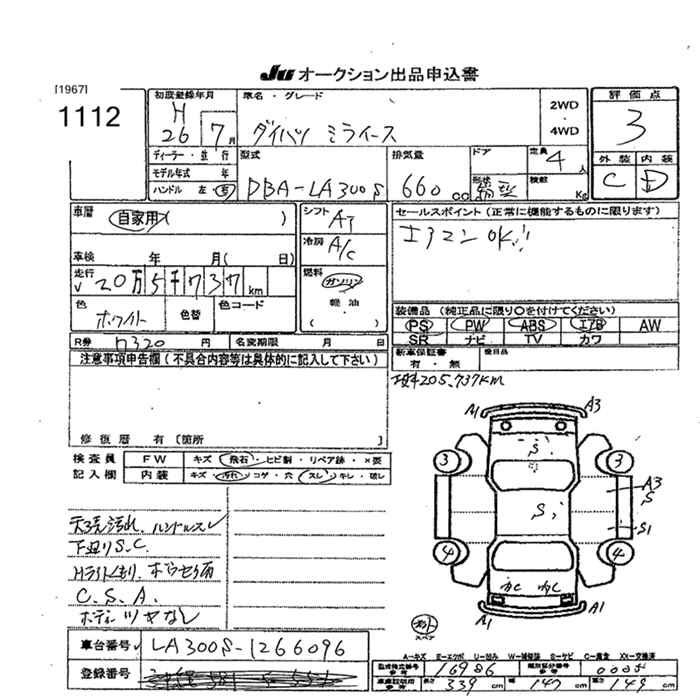 Ju オークション出品申込書
[1967]
1112
初度登録年月
H 26 7月
車名・グレード
ダイハツ ミライース
2WD
・
4WD
評価点
3
外装 内装
C D
ディーラー・並行
モデル年式 年
ハンドル 左 右
型式
DBA-LA300S
排気量
660 cc
ドア
形状
定員 4 人
積載 Kg
車歴
自家用 ( )
車検 年 月 ( 日)
走行
20万5千737km
色
ホワイト
色替
色コード
シフト AT
冷房 A/C
燃料
ガソリン
軽油
( )
セールスポイント (正常に機能するものに限ります)
エアコンOK!!
装備品 (純正品に限り○を付けてください)
PS PW ABS エアB AW
SR ナビ TV カワ
新車保証書
有・無
後日品
R券 円 名変期限 月 日
注意事項申告欄 (不具合内容等は具体的に記入して下さい)
205,737km
修復歴 有 [箇所 ]
検査員
記入欄
FW キズ・飛石・ヒビ割・リペア跡・×要
内装 キズ・汚れ・コゲ・穴・スレ・キレ・破レ
天張汚れ、ハンドルスレ
下廻りS.C.
Hライトくもり、
C.S.A.
ボディツヤなし
A1 A3
S
3 3
A3
S
S
S1
4 4
A1 A1
スペア
車台番号 LA300S-1266096
登録番号
A-キズ E-エクボ U-凹み W-補修跡 S-サビ C-腐食 XX-交換済
型式指定番号 16986
類別区分番号 0005
長さ 339 cm
幅 147 cm
高 149 cm